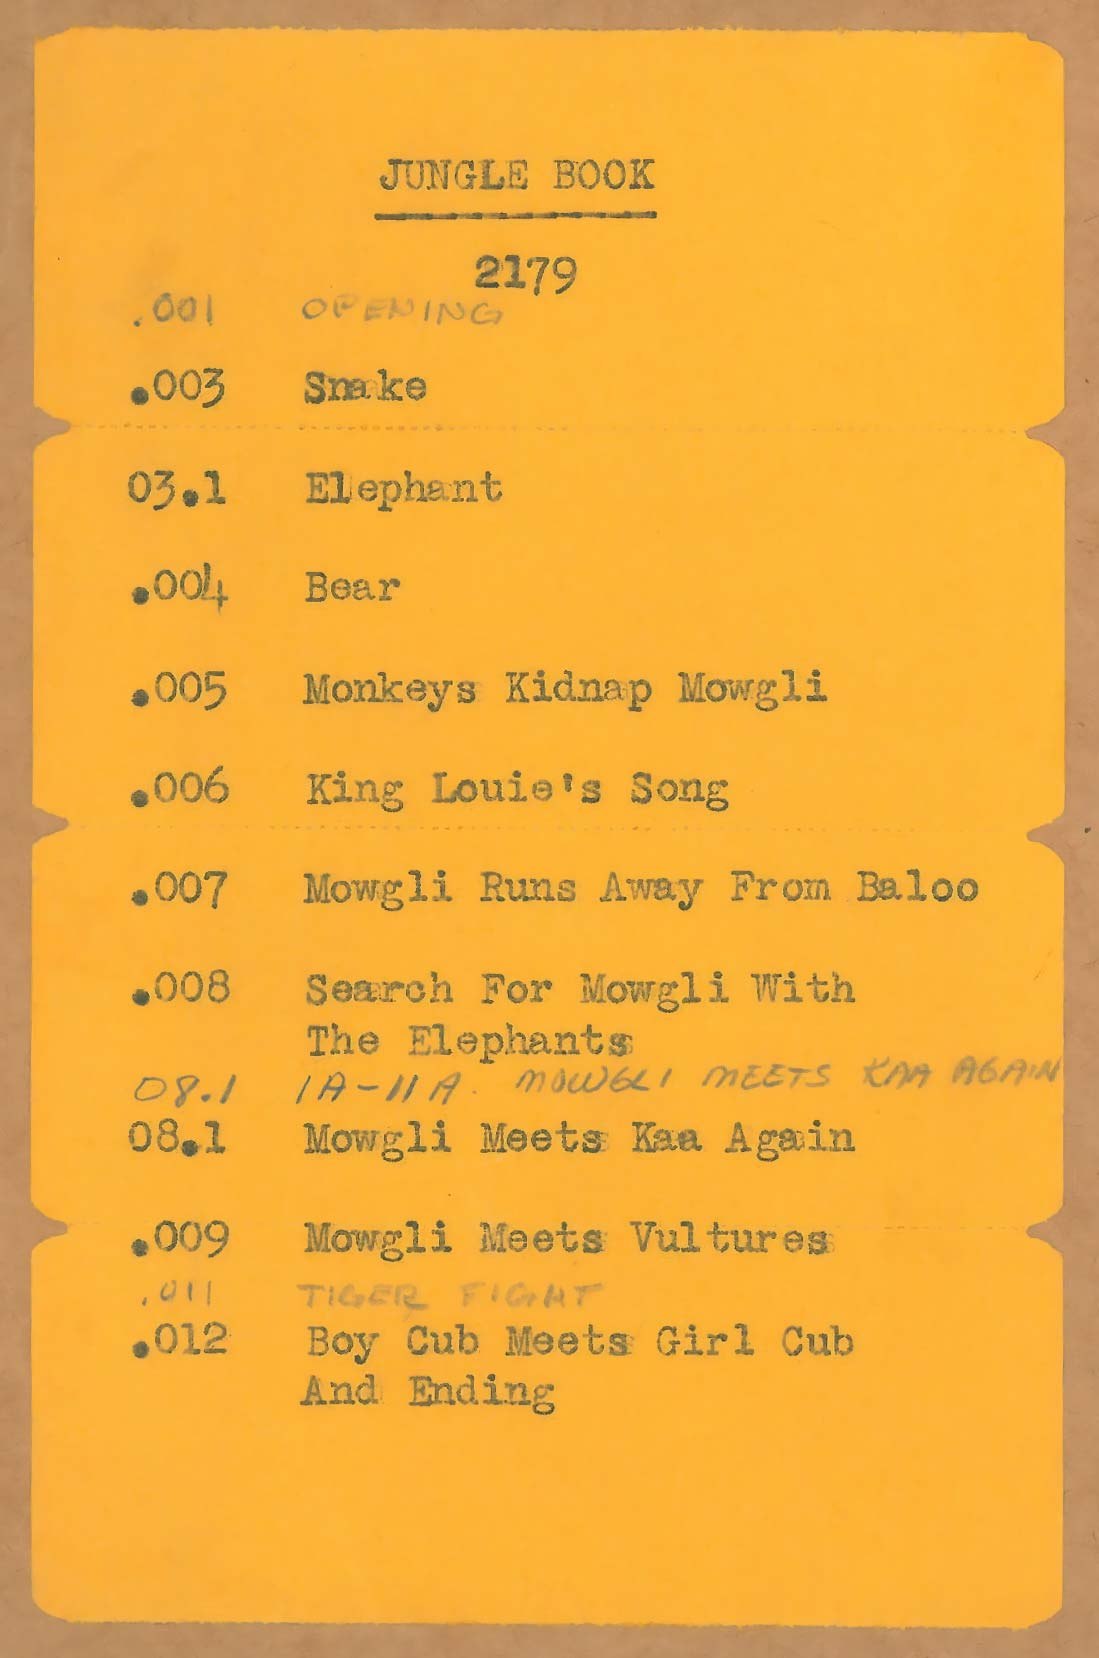 JUNGLE BOOK
2179
.001 OPENING
.003 Snake
03.1 Elephant
.004 Bear
.005 Monkeys Kidnap Mowgli
.006 King Louie's Song
.007 Mowgli Runs Away From Baloo
.008 Search For Mowgli With
The Elephants
08.1 1A-11A. MOWGLI MEETS KAA AGAIN
08.1 Mowgli Meets Kaa Again
.009 Mowgli Meets Vultures
.011 TIGER FIGHT
.012 Boy Cub Meets Girl Cub
And Ending